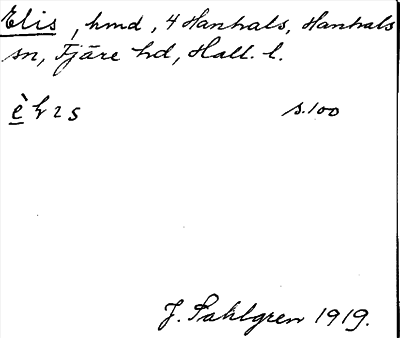 Elis, hmd, 4 Hanhals, Hanhals
sn, Fjäre hd, Hall. l.
s. 100
J. Sahlgren 1919.